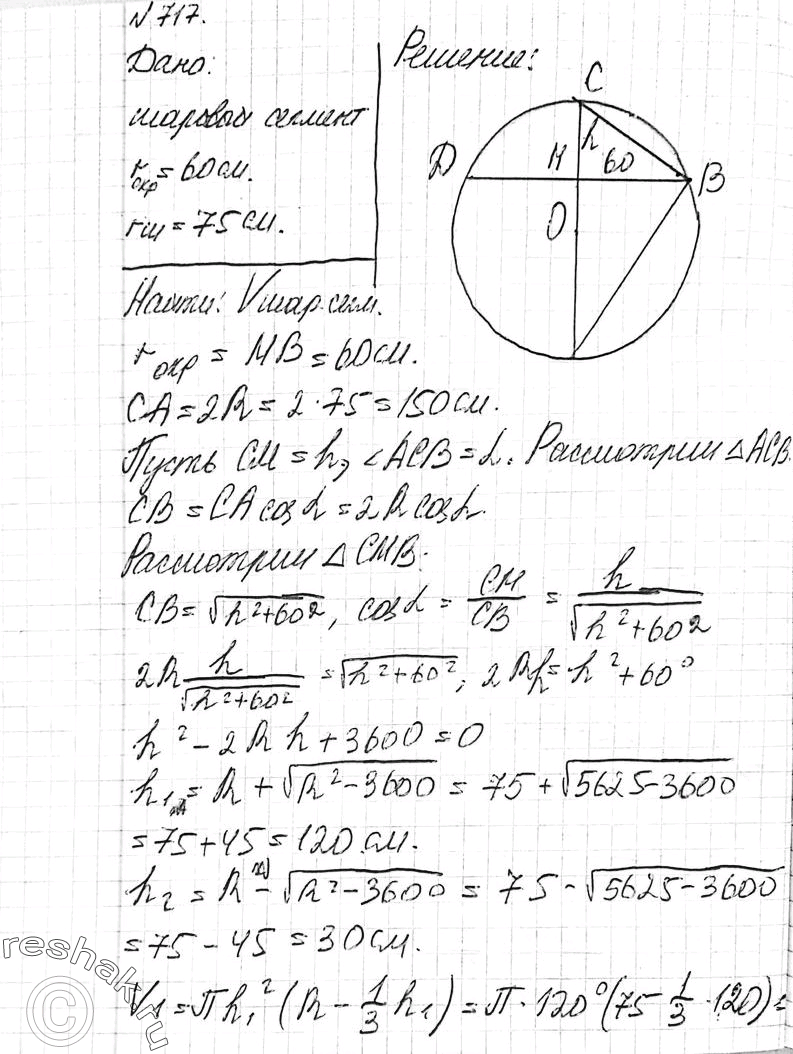 N 717.
Дано:
шаровой сегмент
r окр = 60 см.
rш = 75 см.
Решение:
C
D
M
h
60
B
O
Найти: Vшар.сегм.
r окр = MB = 60 см.
CA = 2R = 2·75 = 150 см.
Пусть CM = h, ∠ACB = α. Рассмотрим △ACB.
CB = CA cos α = 2R cos α.
Рассмотрим △CMB.
CB = √(h²+60²), cos α = CM/CB = h/√(h²+60²)
2R h/√(h²+60²) = √(h²+60²); 2Rh = h²+60²
h² - 2Rh + 3600 = 0
h₁ = R + √(R²-3600) = 75 + √(5625-3600)
= 75 + 45 = 120 см.
h₂ = R - √(R²-3600) = 75 - √(5625-3600)
= 75 - 45 = 30 см.
V₁ = πh₁²(R - 1/3 h₁) = π·120²(75 - 1/3·120) =
©reshak.ru